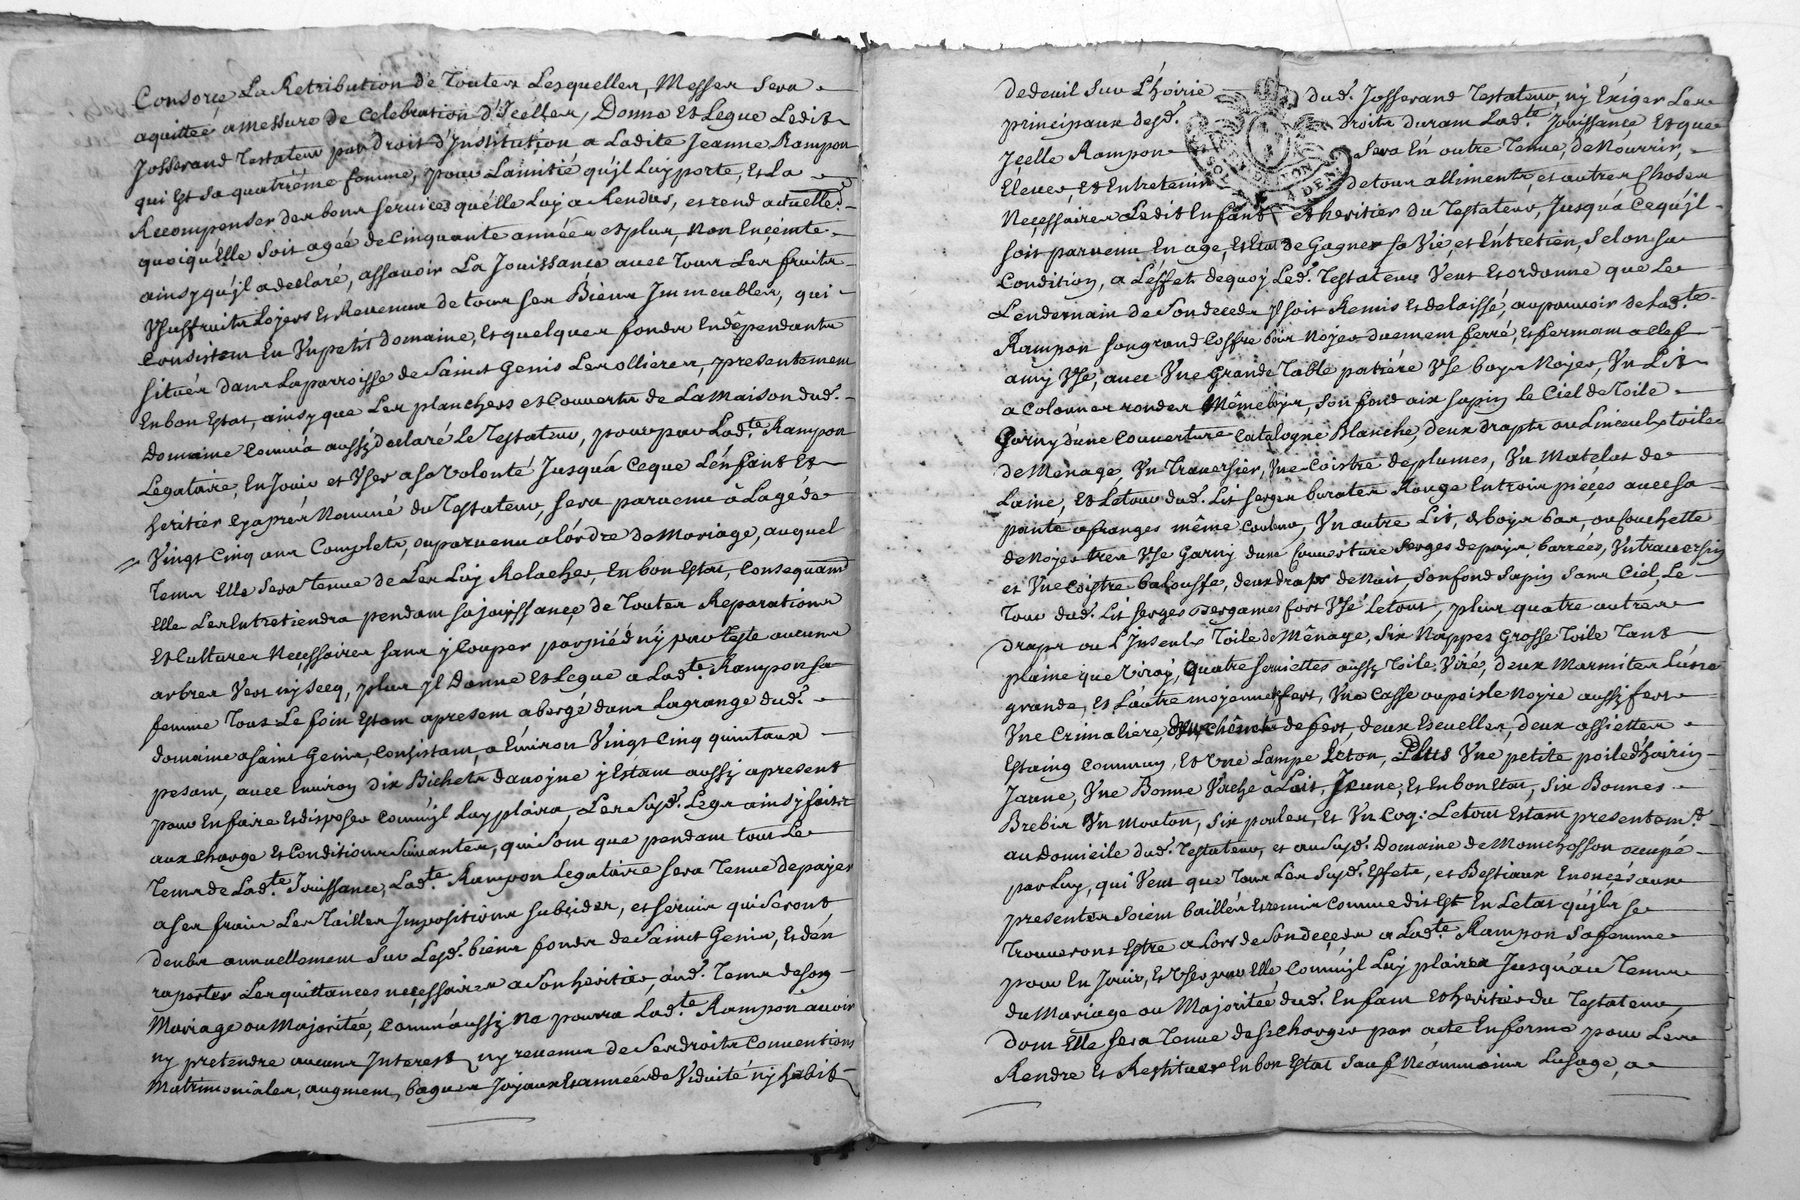 Consorçe La Retribution de Toutes Lesquelles, Messes Sera
aquittée a messure de Celebration d'Jcelles, Donne Et Legue Ledit
Josserand Testateur par droit d'Institution a Ladite Jeanne Rampon
qui Est sa quatriéme femme, pour L'amitié qu'jl Luy porte, Et La
Recompenser des bons services qu'elle Luy a Rendus, et rend actuellem.t
quoiqu'Elle soit ageé de Cinquante années et plus, non Enceinte
ainsy qu'jl a declaré, assavoir La Jouissance avec Tous Les fruits
Usuffruits Loyers Et Revenus de tous ses Biens Jmmeubles, qui
Consistent En Un petit domaine, Et quelques fonds Endépendants
situés dans La parroisse de Saint Genis Les ollieres, presentement
En bon Estat, ainsy que Les planchers et Couverts de La Maison dud.
Domaine Comm'a aussy declaré Le Testateur, pour par Lad.te Rampon
Legataire, En Jouir et Vser a sa Volonté Jusqu'a Ceque L'enfant Et
heritier Cyaprés Nommé du Testateur, sera parvenu â L'age de
Vingt Cinq ans Complets, ou parvenu a L'ordre de Mariage, auquel
Tems Elle Sera tenue de Les Luy Relacher, En bon Estat, Consequamt
Elle Les Entretiendra pendant sa jouissançe de Toutes Reparations
Et Cultures Necessaires sans y Couper par piéd nÿ par Teste aucuns
arbres Vert nÿ secq, plus Jl Donne Et Legue a Lad.te Rampon sa
femme Tout Le foin Estant apresent abergé dans La grange dud.
domaine a saint Genis, Consistant, a Environ Vingt Cinq quintaux
pesant, avec Environ dix Bichets d'avoyne y Estant aussy apresent
pour En faire Et disposer Comm'jl Luy plaira, Les Susd. Legs ainsy faits
aux charge Et Conditions Suivantes, qui Sont que pendant tout Le
Tems de Lad.te Jouissance, Lad.te Rampon Legataire sera Tenue de payer
a ses frais Les Tailles Jmpositions subsides, et servis qui seront
deubs annuellement Sur Lesd. biens fonds de Saint Genis, Et d'en
raporter Les quittances necessaires a Son heritier, aud. Tems de son
Mariage ou Majoritée, Comm'aussy ne pourra Lad.te Rampon avoir
ny pretendre aucuns Jnterest ny revenus de Ses droits Conventions
Matrimoniales, augment, bagues Joyaux Et année de Viduité nÿ habit
de deuil Sur L'hoirie dud. Josserand Testateur, ny Exiger Les
principaux desd. droits durant Lad.te Jouissance Et que
Jcelle Rampon Sera En outre Tenue, de Nourrir,
Elever, Et Entretenir de tous alliments, et autres Choses
Necessaires Ledit Enfant et heritier du Testateur, Jusqu'a Cequ'jl
soit parvenu En age, Et Etat de Gagner sa Vie, et Entretien, Selon sa
Condition, a L'effet dequoy Led. Testateur Veut Et ordonne que Le
Lendemain de Son decéds Jl soit Remis Et delaissé, au pouvoir de Lad.te
Rampon son grand Coffre bois Noyer duement ferré, Et fermant a Clef
amy Vsé, avec Vne Grande Table patiére Vsé boys Noyer, Un Lit
a Colonnes rondes Même boys, son fond aix sapin le Ciel de Toile
Garny d'une Couverture Catalogne Blanche, deux drapts ou Linceulx toile
de Ménage, Un Traversier, Vne Coistre de plumes, Un Matelas de
Laine, Et Le tour dud. Lit serges burates Rouge En trois pieçes avec sa
pante a franges même Couleur, Un autre Lit, de boys bas, ou Couchette
de Noyer tres Vsé Garny d'une Couverture Serges de pays barrées, Un traversin
et Vne Coistre balouffe, deux draps de Nuit, son fond Sapin Sans Ciel, Le
Tour dud. Lit serges Bergames fort Vsé Le tout, plus quatre autres
draps ou Linseulx Toile de Ménage, Six Nappes Grosse Toile Tant
plaine que Viroÿ, quatre serviettes aussy Toile Viré, deux Marmites L'une
grande, Et L'autre moyenne fert, Vne Casse ou poisle Noÿre aussy fert
Vne Crimaliere, chênets de fert, deux Escuelles, deux assiettes
Estaing Commun, Et Vne Lampe Leton, Plus Vne petite poile d'hairin
Jaune, Vne Bonne Vache à Lait, Jeune, Et En bon Etat, Six Bonnes
Brebis Vn Mouton, Six poules, Et Vn Coq: Le tout Estant presentem.t
au Domicile dud. Testateur, et au Susd. Domaine de Montchosson occupé
par Luy, qui Veut que Tous Les Susd. Effets, et Bestiaux Enonçés aux
presentes Soient baillés Et remis Comme dit Est En L'etat qu'jls se
Trouveront Estre a Lors de Son decéds a Lad.te Rampon Sa femme
pour En Jouir, Et Vser par Elle Comm'jl Luy plaira Jusqu'au Tems
du Mariage ou Majoritée dud. Enfant Et heritier du Testateur,
Dont Elle sera Tenue de Se Charger par acte En forme pour Les
Rendre Et Restituer En bon Estat Sauf Neanmoins L'usage, a